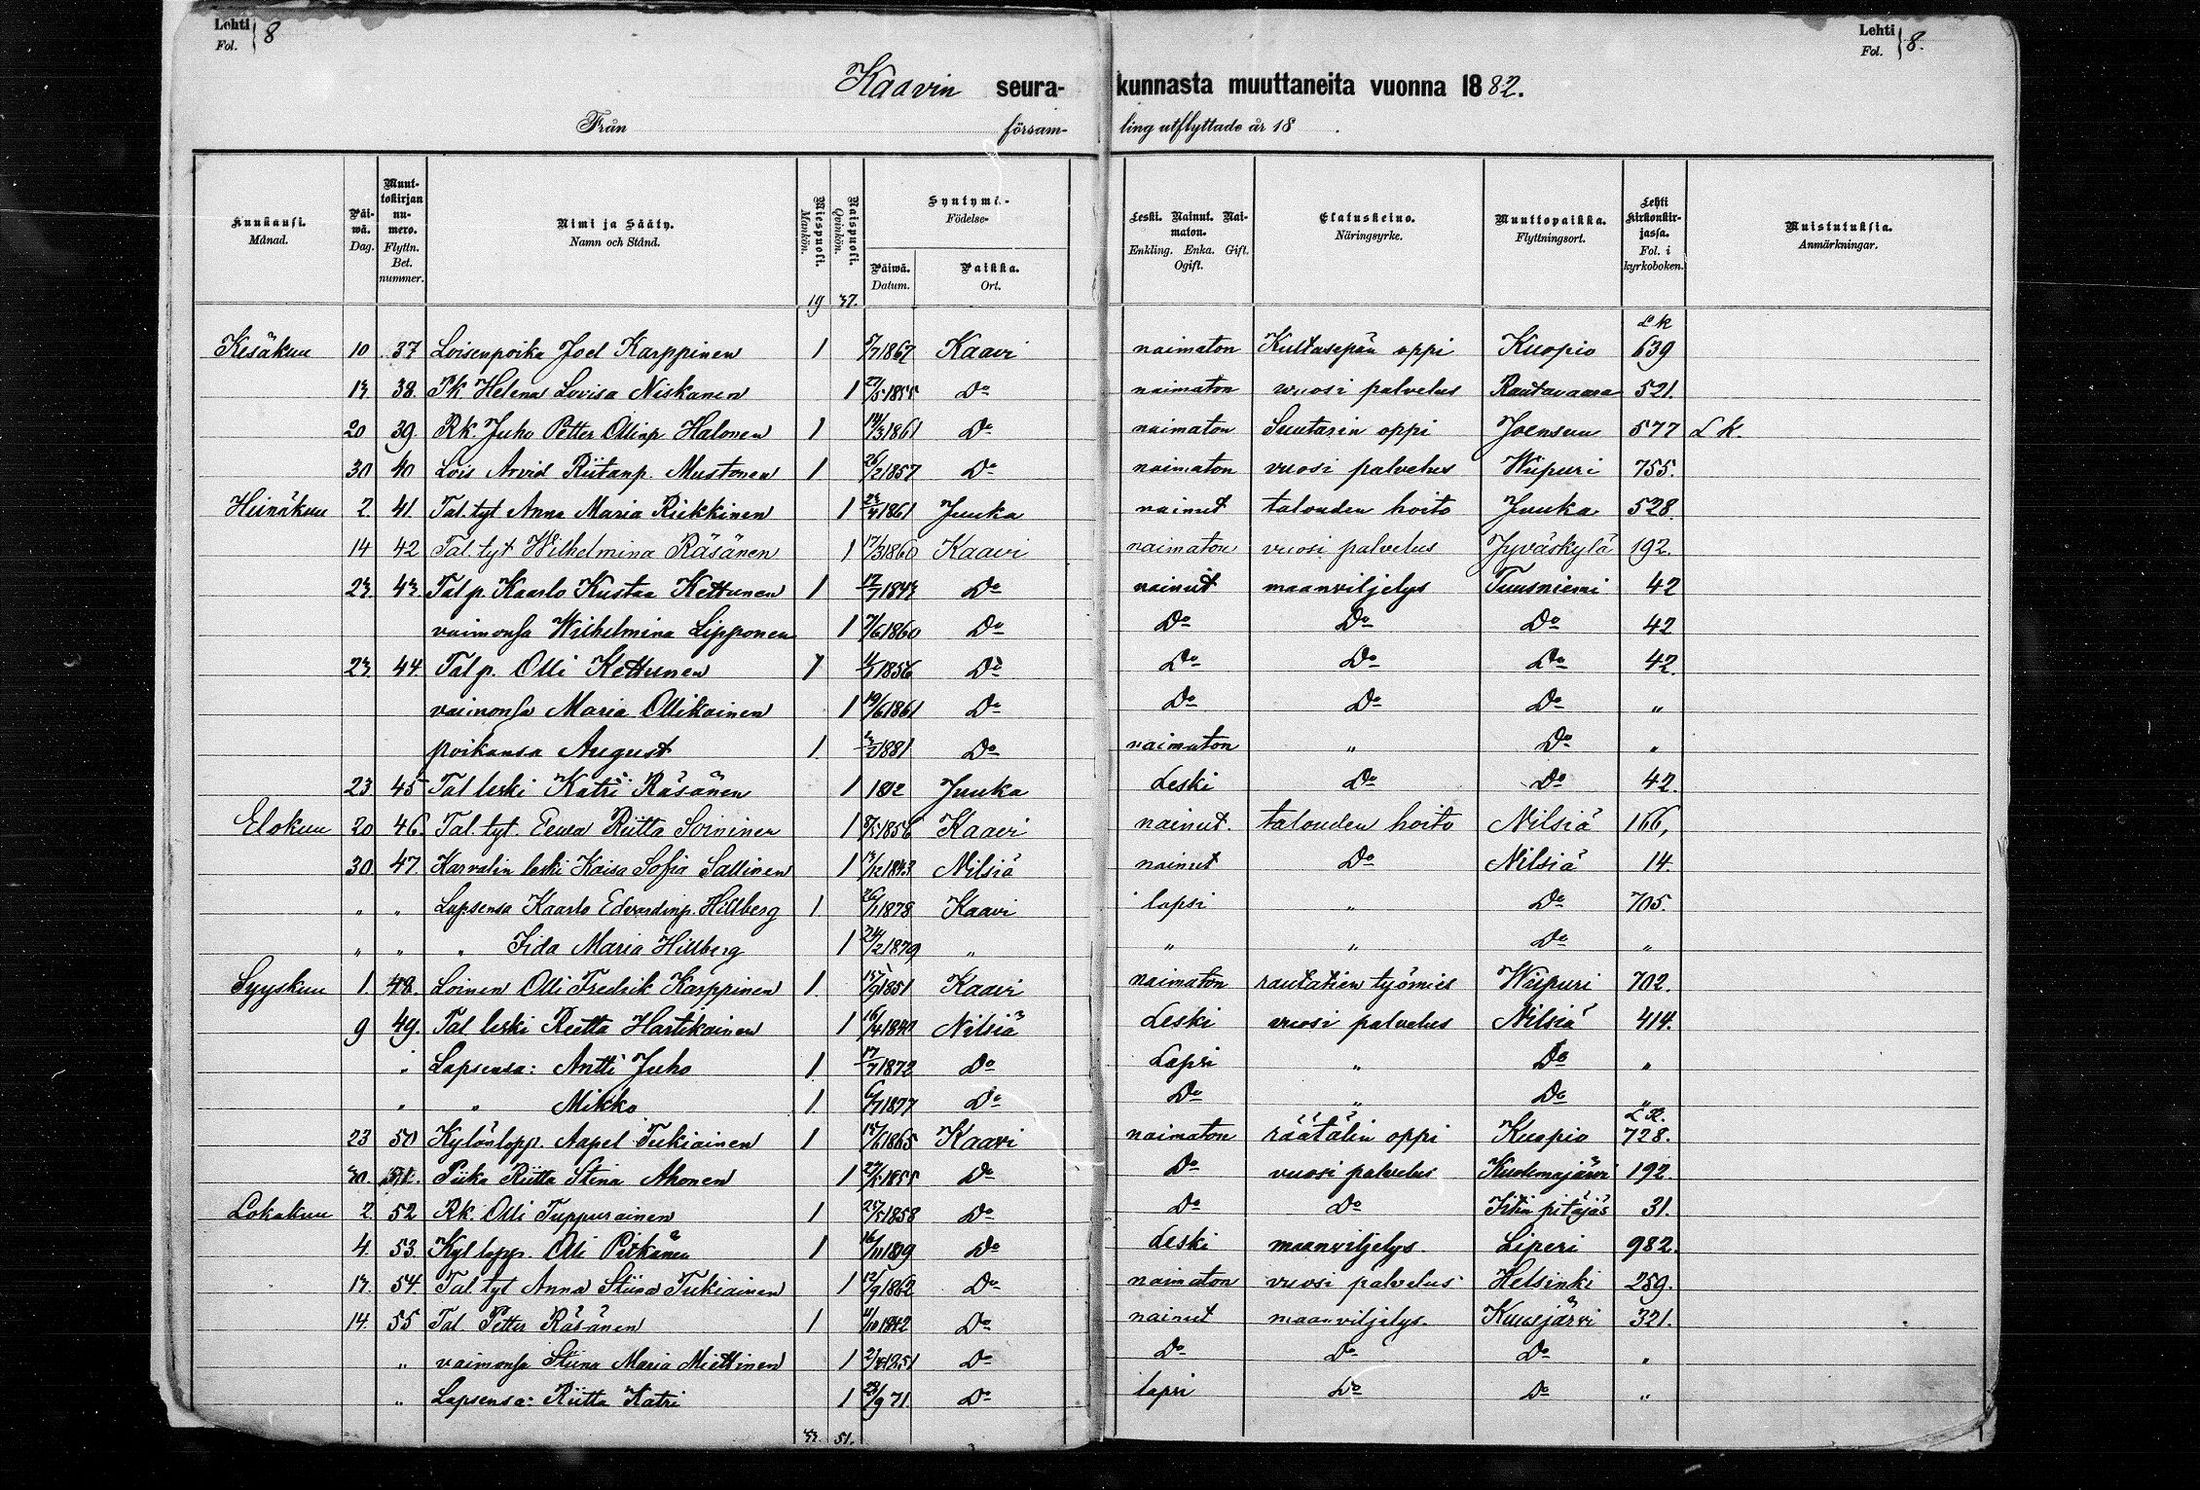 Lehti Fol. 8
Lehti Fol. 8.
Kaavin seurakunnasta muuttaneita vuonna 1882.
Från försam- ling utflyttade år 18 .
Kuukausi. Månad. Päiwä. Dag. Muuttokirjan numero. Flyttn. Bet. nummer. Nimi ja Sääty. Namn och Stånd. Miespuoli. Mankön. Naispuoli. Qvinkön. Syntymä- Födelse- Päiwä. Datum. Paikka. Ort. Leski. Nainut. Naimaton. Enkling. Enka. Gift. Ogift. Elatuskeino. Näringsyrke. Muuttopaikka. Flyttningsort. Lehti kirkonkirjassa. Fol. i kyrkoboken. Muistutuksia. Anmärkningar.
19 37.
L k
Kesäkuu 10 37 Loisenpoika Joel Karppinen 1 1867 Kaavi naimaton Kultasepän oppi Kuopio 639
13 38. Pk Helena Lovisa Niskanen 1 1855 Do naimaton vuosi palvelus Rautavaara 521.
20 39. Rk. Juho Petter Ollinp. Halonen 1 14/3 1861 Do naimaton Suutarin oppi Joensuu 577 L k.
30 40 Lois Arvid Riitanp. Mustonen 1 26/2 1857 Do naimaton vuosi palvelus Wiipuri 755.
Heinäkuu 2. 41. Tal. tyt Anna Maria Riekkinen 1 1861 Juuka nainut talouden hoito Juuka 528.
14 42 Tal. tyt Wilhelmina Räsänen 1 17/3 1860 Kaavi naimaton vuosi palvelus Jyväskylä 192.
23. 43. Tal p. Kaarlo Kustaa Kettunen 1 1843 Do nainut maanviljelys Tuusniemi 42
vaimonsa Wilhelmina Lipponen 1 7/6 1860 Do Do Do Do 42
23. 44. Tal p. Olli Kettunen 1 1856 Do Do Do Do 42.
vaimonsa Maria Ollikainen 1 19/6 1861 Do Do Do Do "
poikansa August 1. 1881 Do naimaton " Do "
23. 45 Tal leski Katri Räsänen 1 1812 Juuka Leski Do Do 42.
Elokuu 20 46. Tal. tyt. Eeva Riitta Soininen 1 1856 Kaavi nainut. talouden hoito Nilsiä 166,
30 47. Karvalin leski Kaisa Sofia Sallinen 1 1843 Nilsiä nainut Do Nilsiä 14.
" " Lapsensa Kaarlo Edvardinp. Hillberg 1 26/1 1878 Kaavi lapsi " Do 705.
" " " Iida Maria Hillberg 1 24/2 1879 " " " Do "
Syyskuu 1. 48. Loinen Olli Fredrik Karppinen 1. 15/9 1851 Kaavi naimaton rautatien työmies Wiipuri 702.
9 49. Tal leski Reetta Hartikainen 1 16/4 1840 Nilsiä Leski vuosi palvelus Nilsiä 414.
" Lapsensa: Antti Juho 1. 17/7 1872 Do Lapsi " Do "
" " Mikko. 1. 6/7 1877 Do Do " Do "
L k.
23 50 Kylönlopp. Aapel Tukiainen 1 1865 Kaavi naimaton räätälin oppi Kuopio 728.
30. 51. Piika Riitta Stina Ahonen 1 1855 Do Do vuosi palvelus Kuolemajärvi 192.
Lokakuu 2. 52 Rk. Olli Tuppurainen 1 1858 Do Do Do Iitin pitäjäs 31.
4. 53. Kyl lopp. Olli Pitkänen 1 16/11 1819 Do Leski maanviljelys. Liperi 982.
13. 54. Tal. tyt Anna Stiina Tukiainen 1 12/9 1862 Do naimaton vuosi palvelus Helsinki 259.
14. 55 Tal Petter Räsänen 1 1842 Do nainut maanviljelys. Kuusjärvi 321.
" vaimonsa Stiina Maria Miettinen 1 1851 Do Do Do Do "
" Lapsensa: Riitta Katri 1 71. Do lapsi Do Do "
33. 51.